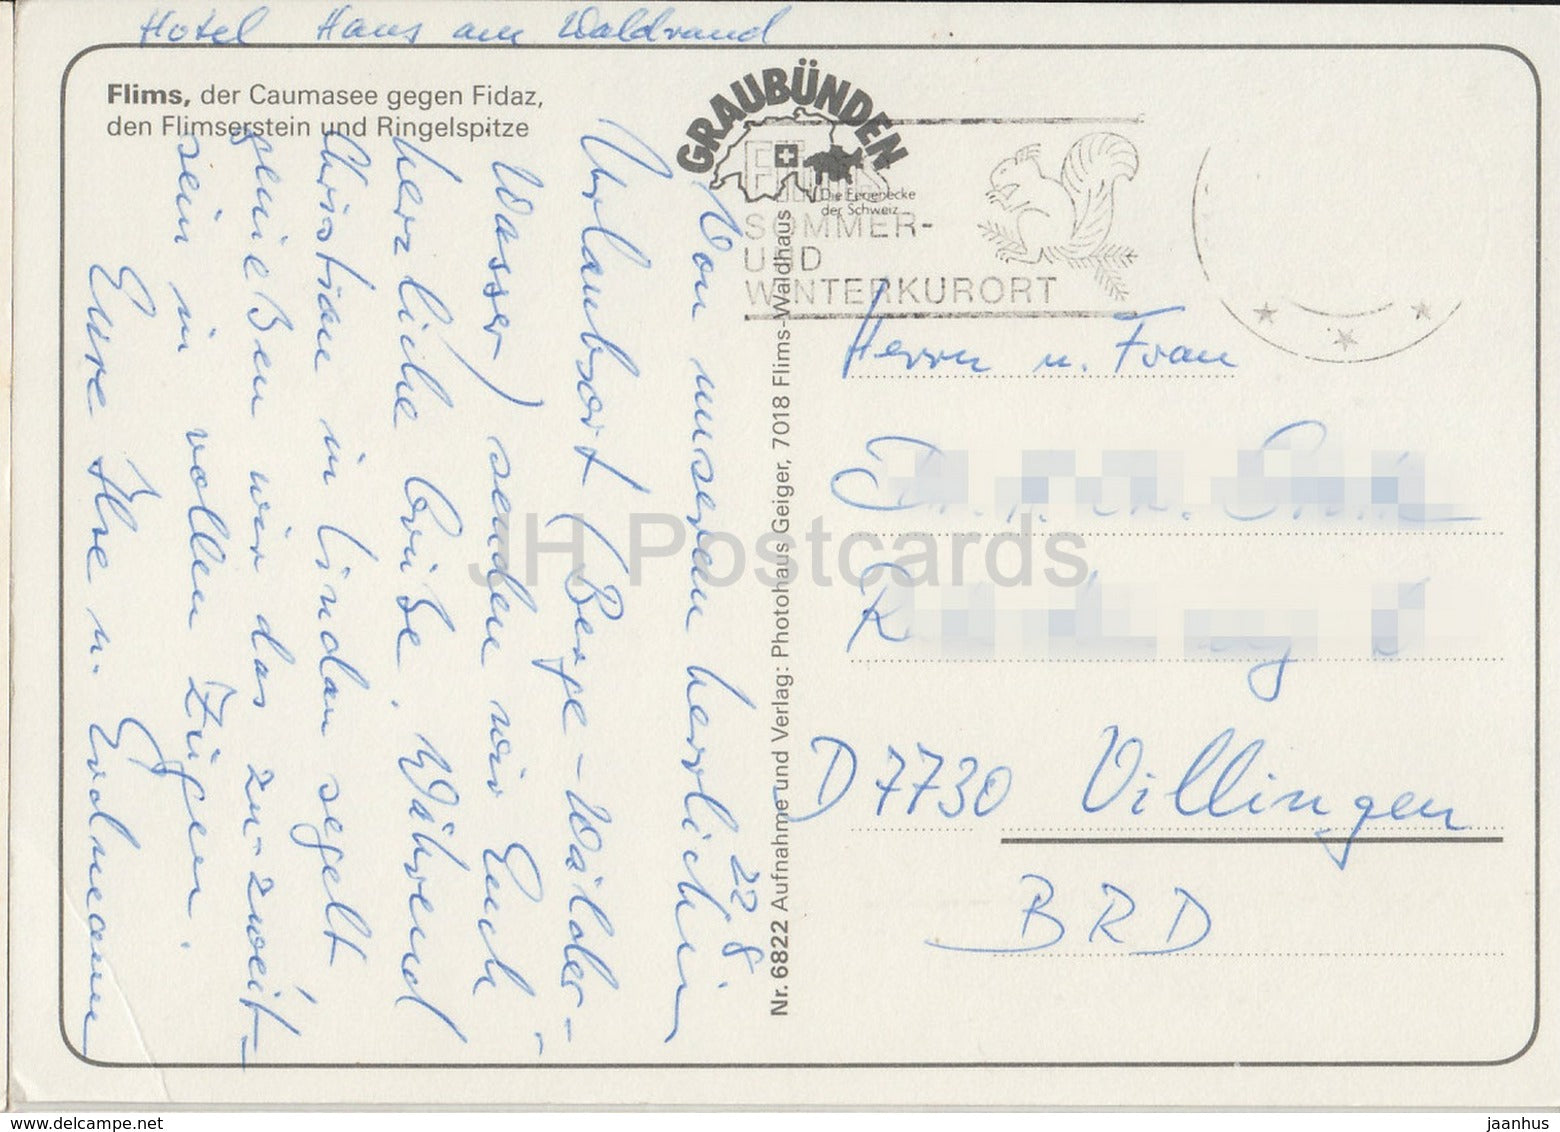 Hotel Haus am Waldrand
Flims, der Caumasee gegen Fidaz,
den Flimserstein und Ringelspitze
GRAUBÜNDEN
Die Ferienecke
der Schweiz
FLIMS
SOMMER-
UND
WINTERKURORT
22 8
Von unserem herrlichen
Urlaubsort (Berge-Wälder-
Wasser) senden wir Euch
herzliche Grüße. Während
Christian in Lindau segelt
genießen wir das zu-zweit-
sein in vollen Zügen.
Eure Ilse u. Erdmann
Nr. 6822 Aufnahme und Verlag: Photohaus Geiger, 7018 Flims-Waldhaus
Herrn u. Frau
D 7730 Villingen
BRD
JH Postcards
www.delcampe.net
jaanhus